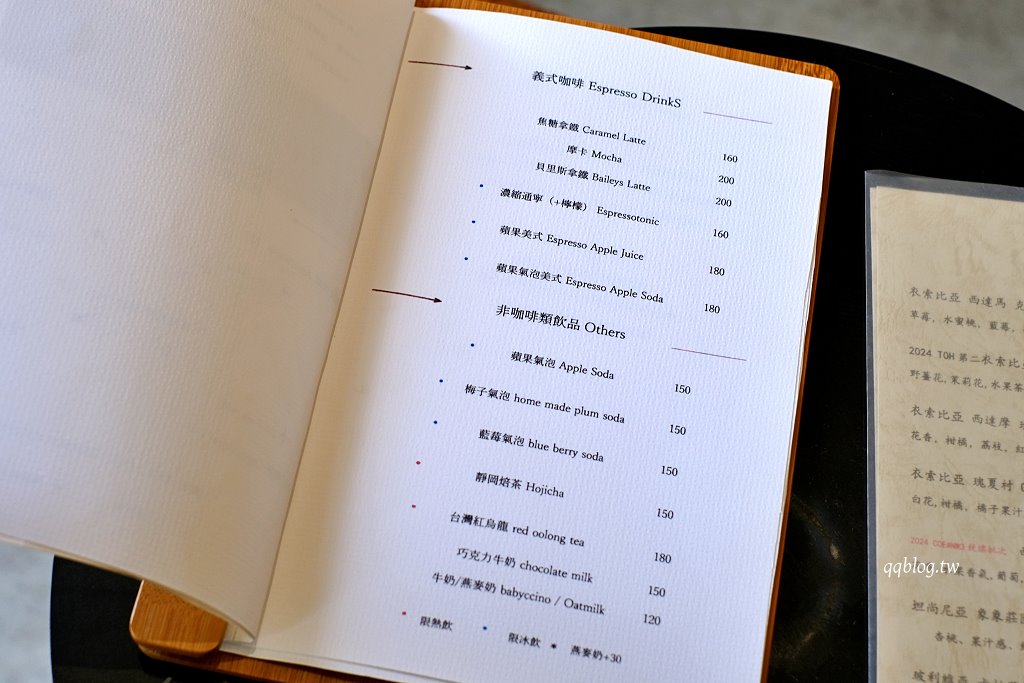 義式咖啡 Espresso DrinkS
焦糖拿鐵 Caramel Latte 160
摩卡 Mocha 200
貝里斯拿鐵 Baileys Latte 200
濃縮通寧（+檸檬） Espressotonic 160
蘋果美式 Espresso Apple Juice 180
蘋果氣泡美式 Espresso Apple Soda 180
非咖啡類飲品 Others
蘋果氣泡 Apple Soda 150
梅子氣泡 home made plum soda 150
藍莓氣泡 blue berry soda 150
靜岡焙茶 Hojicha 150
台灣紅烏龍 red oolong tea 180
巧克力牛奶 chocolate milk 150
牛奶/燕麥奶 babyccino / Oatmilk 120
限熱飲 限冰飲 * 燕麥奶+30
衣索比亞 西達馬
草莓, 水蜜桃, 藍莓,
2024 TOH 第二衣索比
野薑花,茉莉花,水果茶
衣索比亞 西達摩
花香, 柑橘, 荔枝, 紅
衣索比亞 瑰夏村
白花,柑橘, 橘子果汁
2024
香氣,葡萄,
坦尚尼亞 象象莊
杏桃、果汁感、
玻利維亞
qqblog.tw